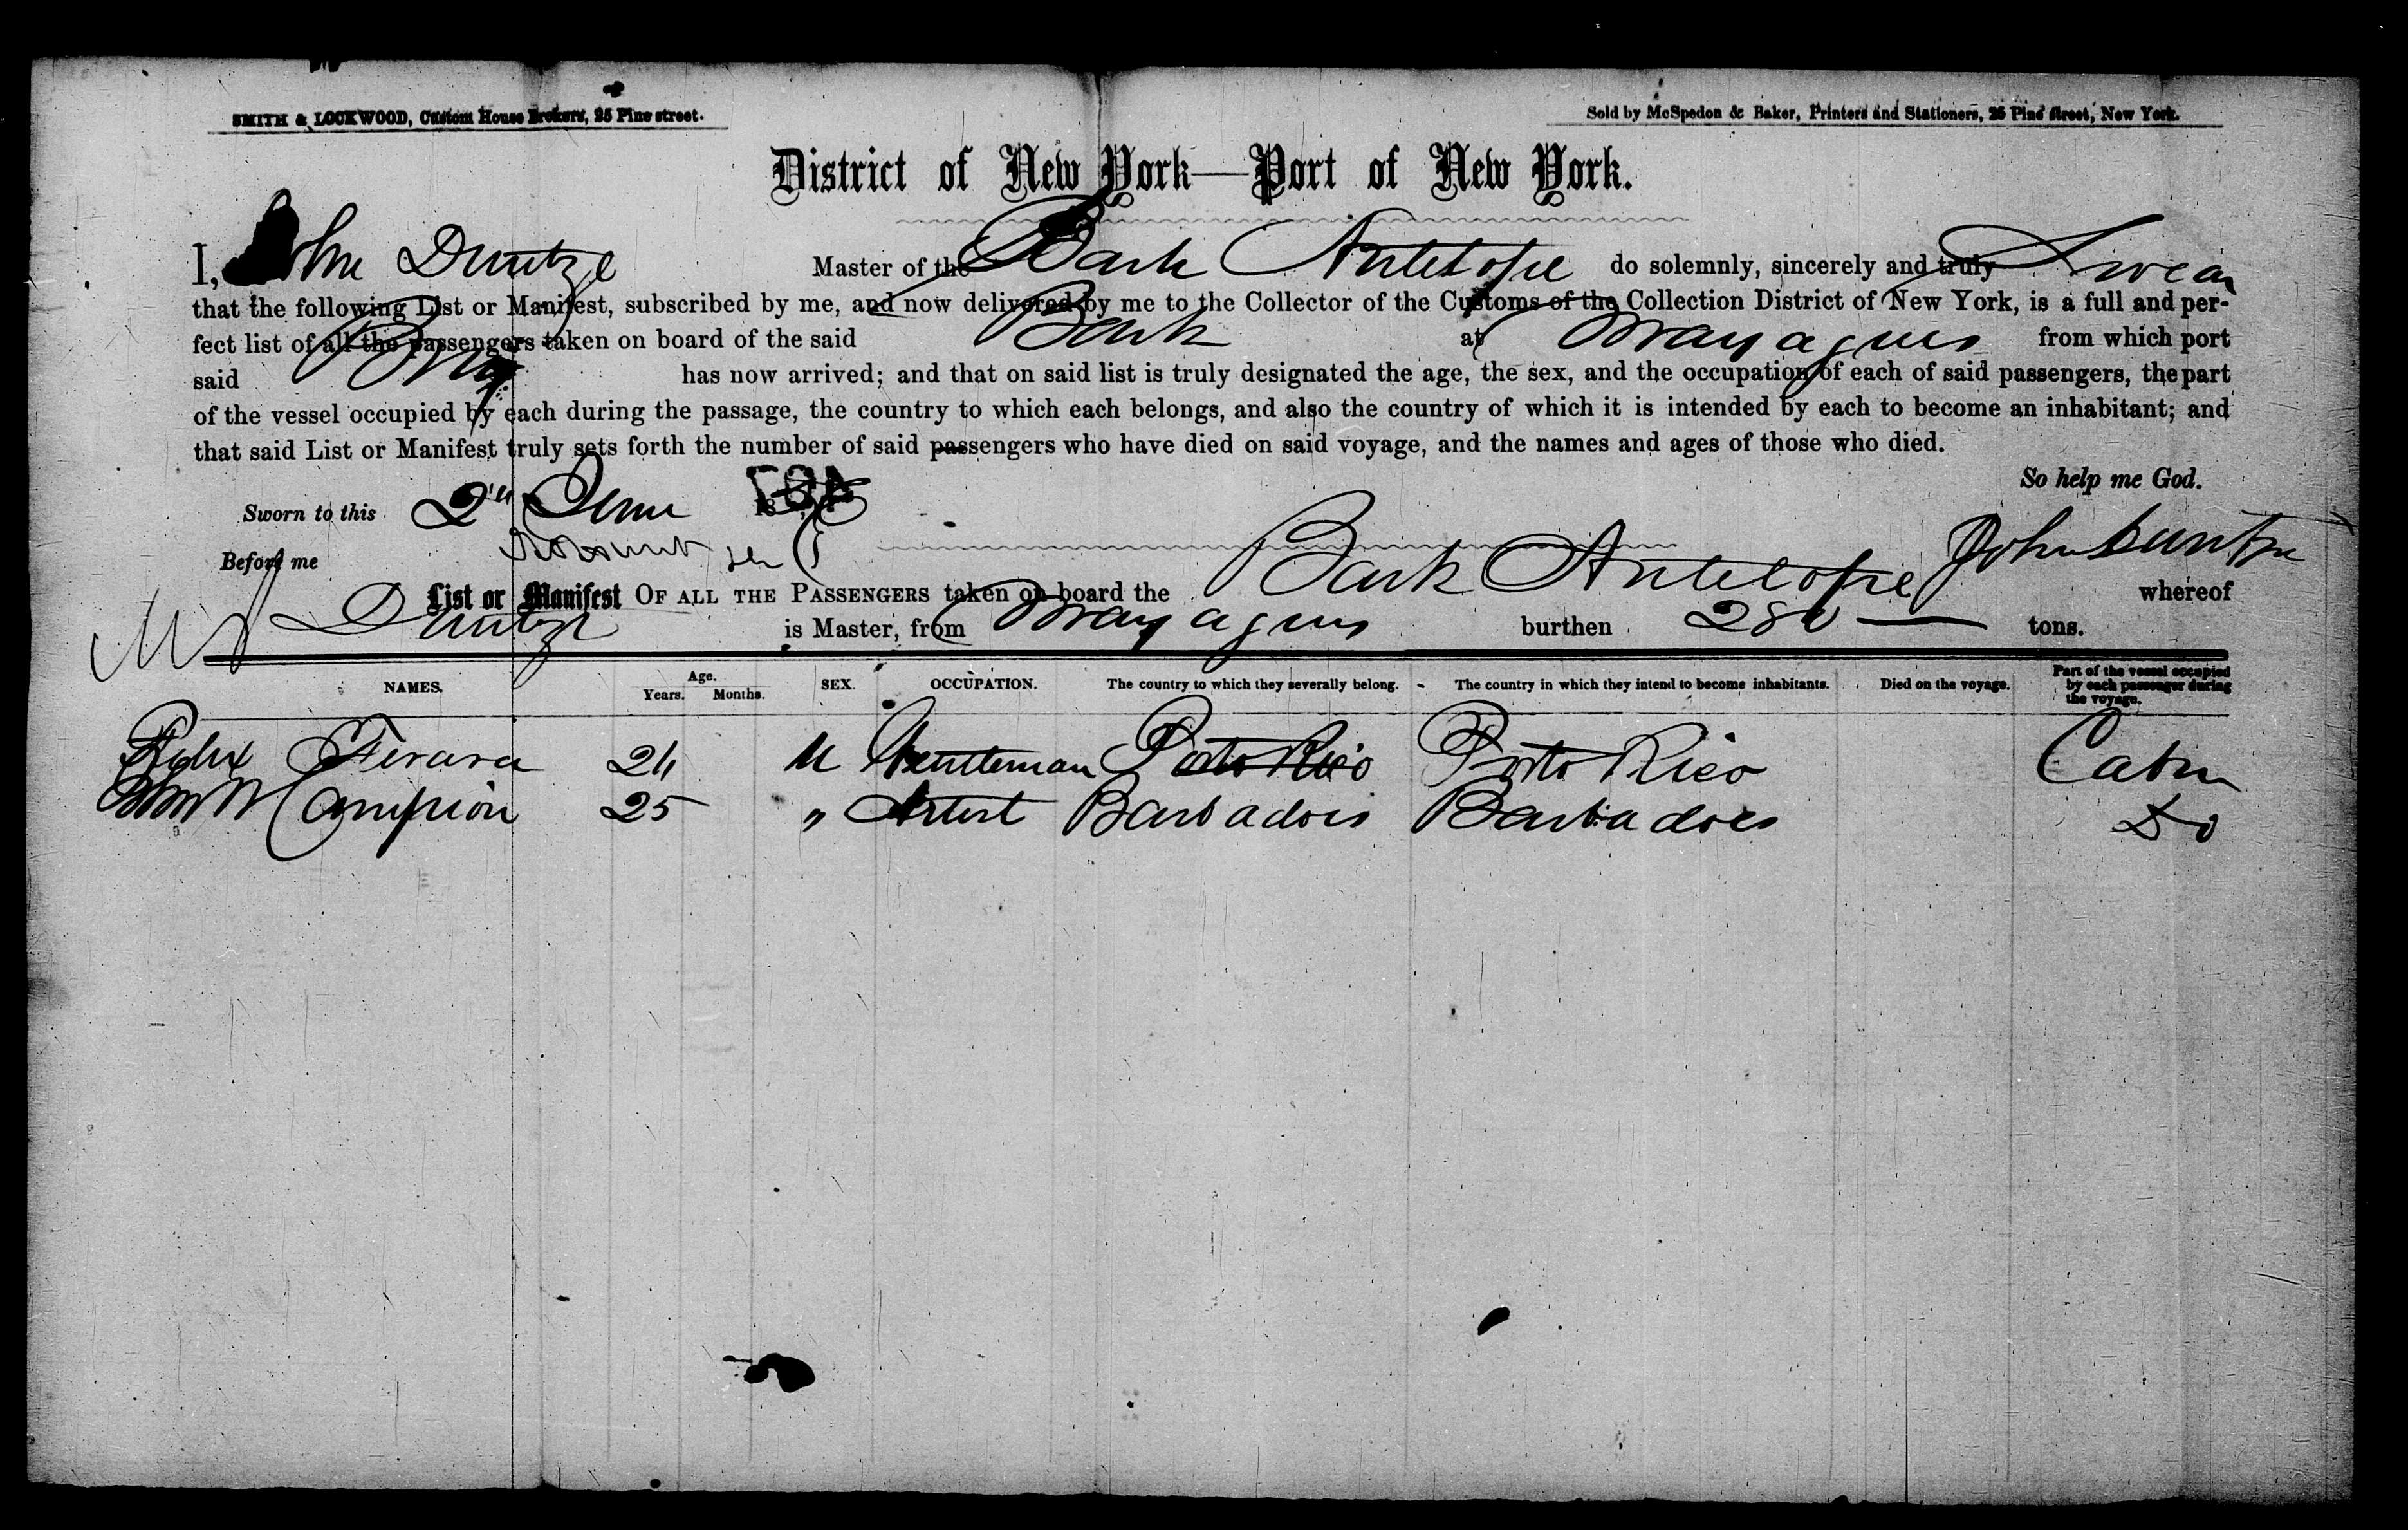 SMITH & LOCKWOOD, Custom House Brokers, 25 Pine street.
Sold by McSpedon & Baker, Printers and Stationers, 25 Pine street, New York.
District of New York—Port of New York.
I, John Duntze Master of the Bark Antelope do solemnly, sincerely and truly Swear
that the following List or Manifest, subscribed by me, and now delivered by me to the Collector of the Customs of the Collection District of New York, is a full and per-
fect list of all the passengers taken on board of the said Bark at Mayagues from which port
said Brig has now arrived; and that on said list is truly designated the age, the sex, and the occupation of each of said passengers, the part
of the vessel occupied by each during the passage, the country to which each belongs, and also the country of which it is intended by each to become an inhabitant; and
that said List or Manifest truly sets forth the number of said passengers who have died on said voyage, and the names and ages of those who died.
So help me God.
Sworn to this 2nd June 18
John Duntze
Before me
List or Manifest OF ALL THE PASSENGERS taken on board the Bark Antelope whereof
Duntze is Master, from Mayagues burthen 280 tons.
NAMES. Age. Years. Months. SEX. OCCUPATION. The country to which they severally belong. The country in which they intend to become inhabitants. Died on the voyage. Part of the vessel occupied by each passenger during the voyage.
Ferara 24 M Gentleman Porto Rico Porto Rico Cabin
Campion 25 " Artist Barbadoes Barbadoes Do